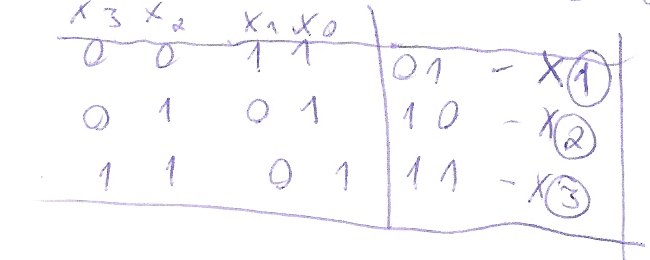 X3 X2 X1 X0
0 0 1 1 01 - X1
0 1 0 1 10 - X2
1 1 0 1 11 - X3